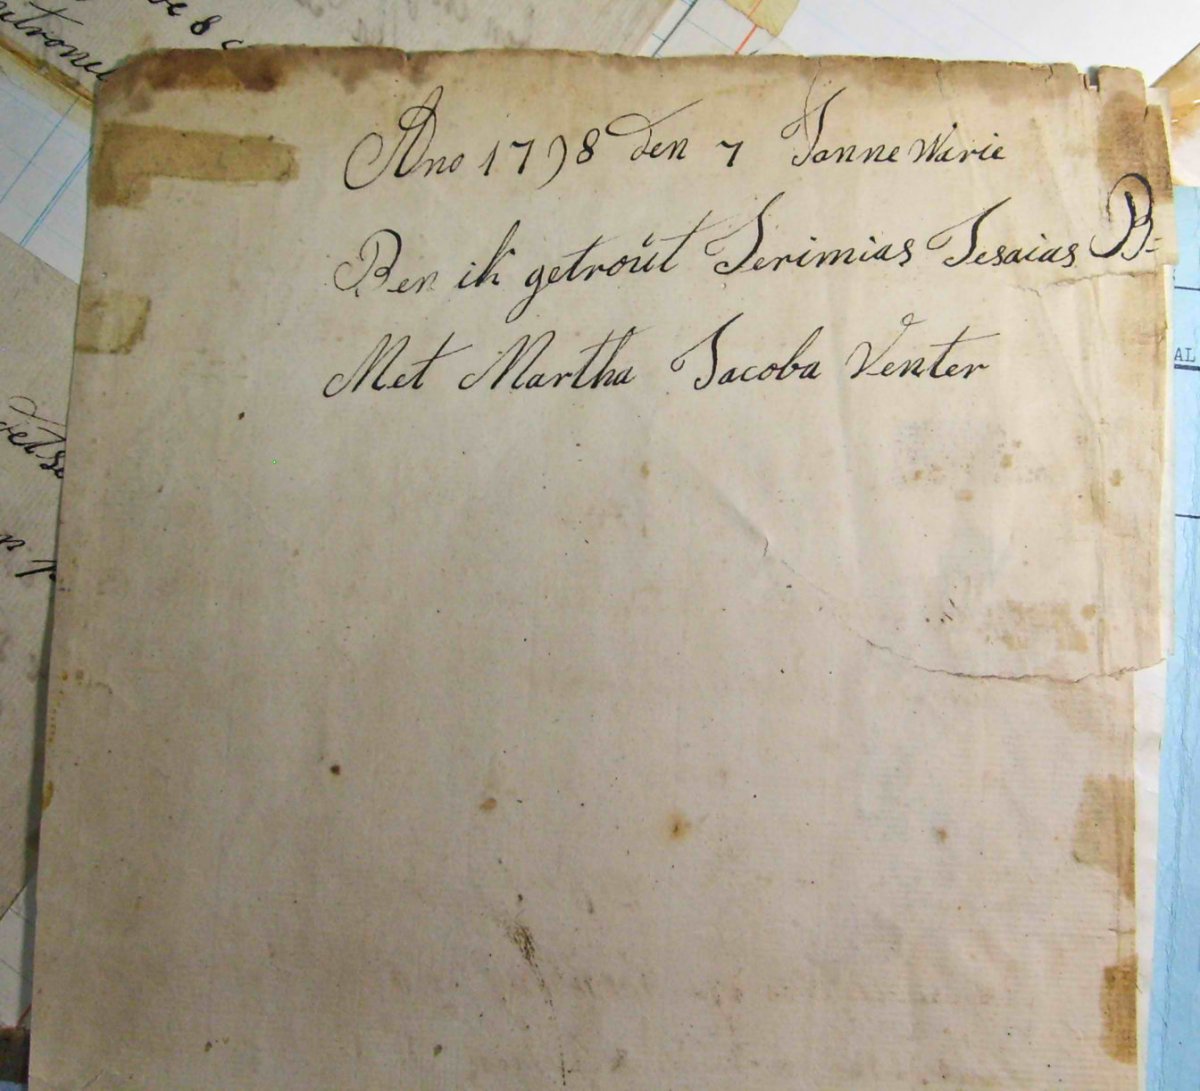 Ano 1798 den 7 Janne Warie
Ben ik getroŭt Jerimias Jesaias B-
Met Martha Jacoba Venter
AL